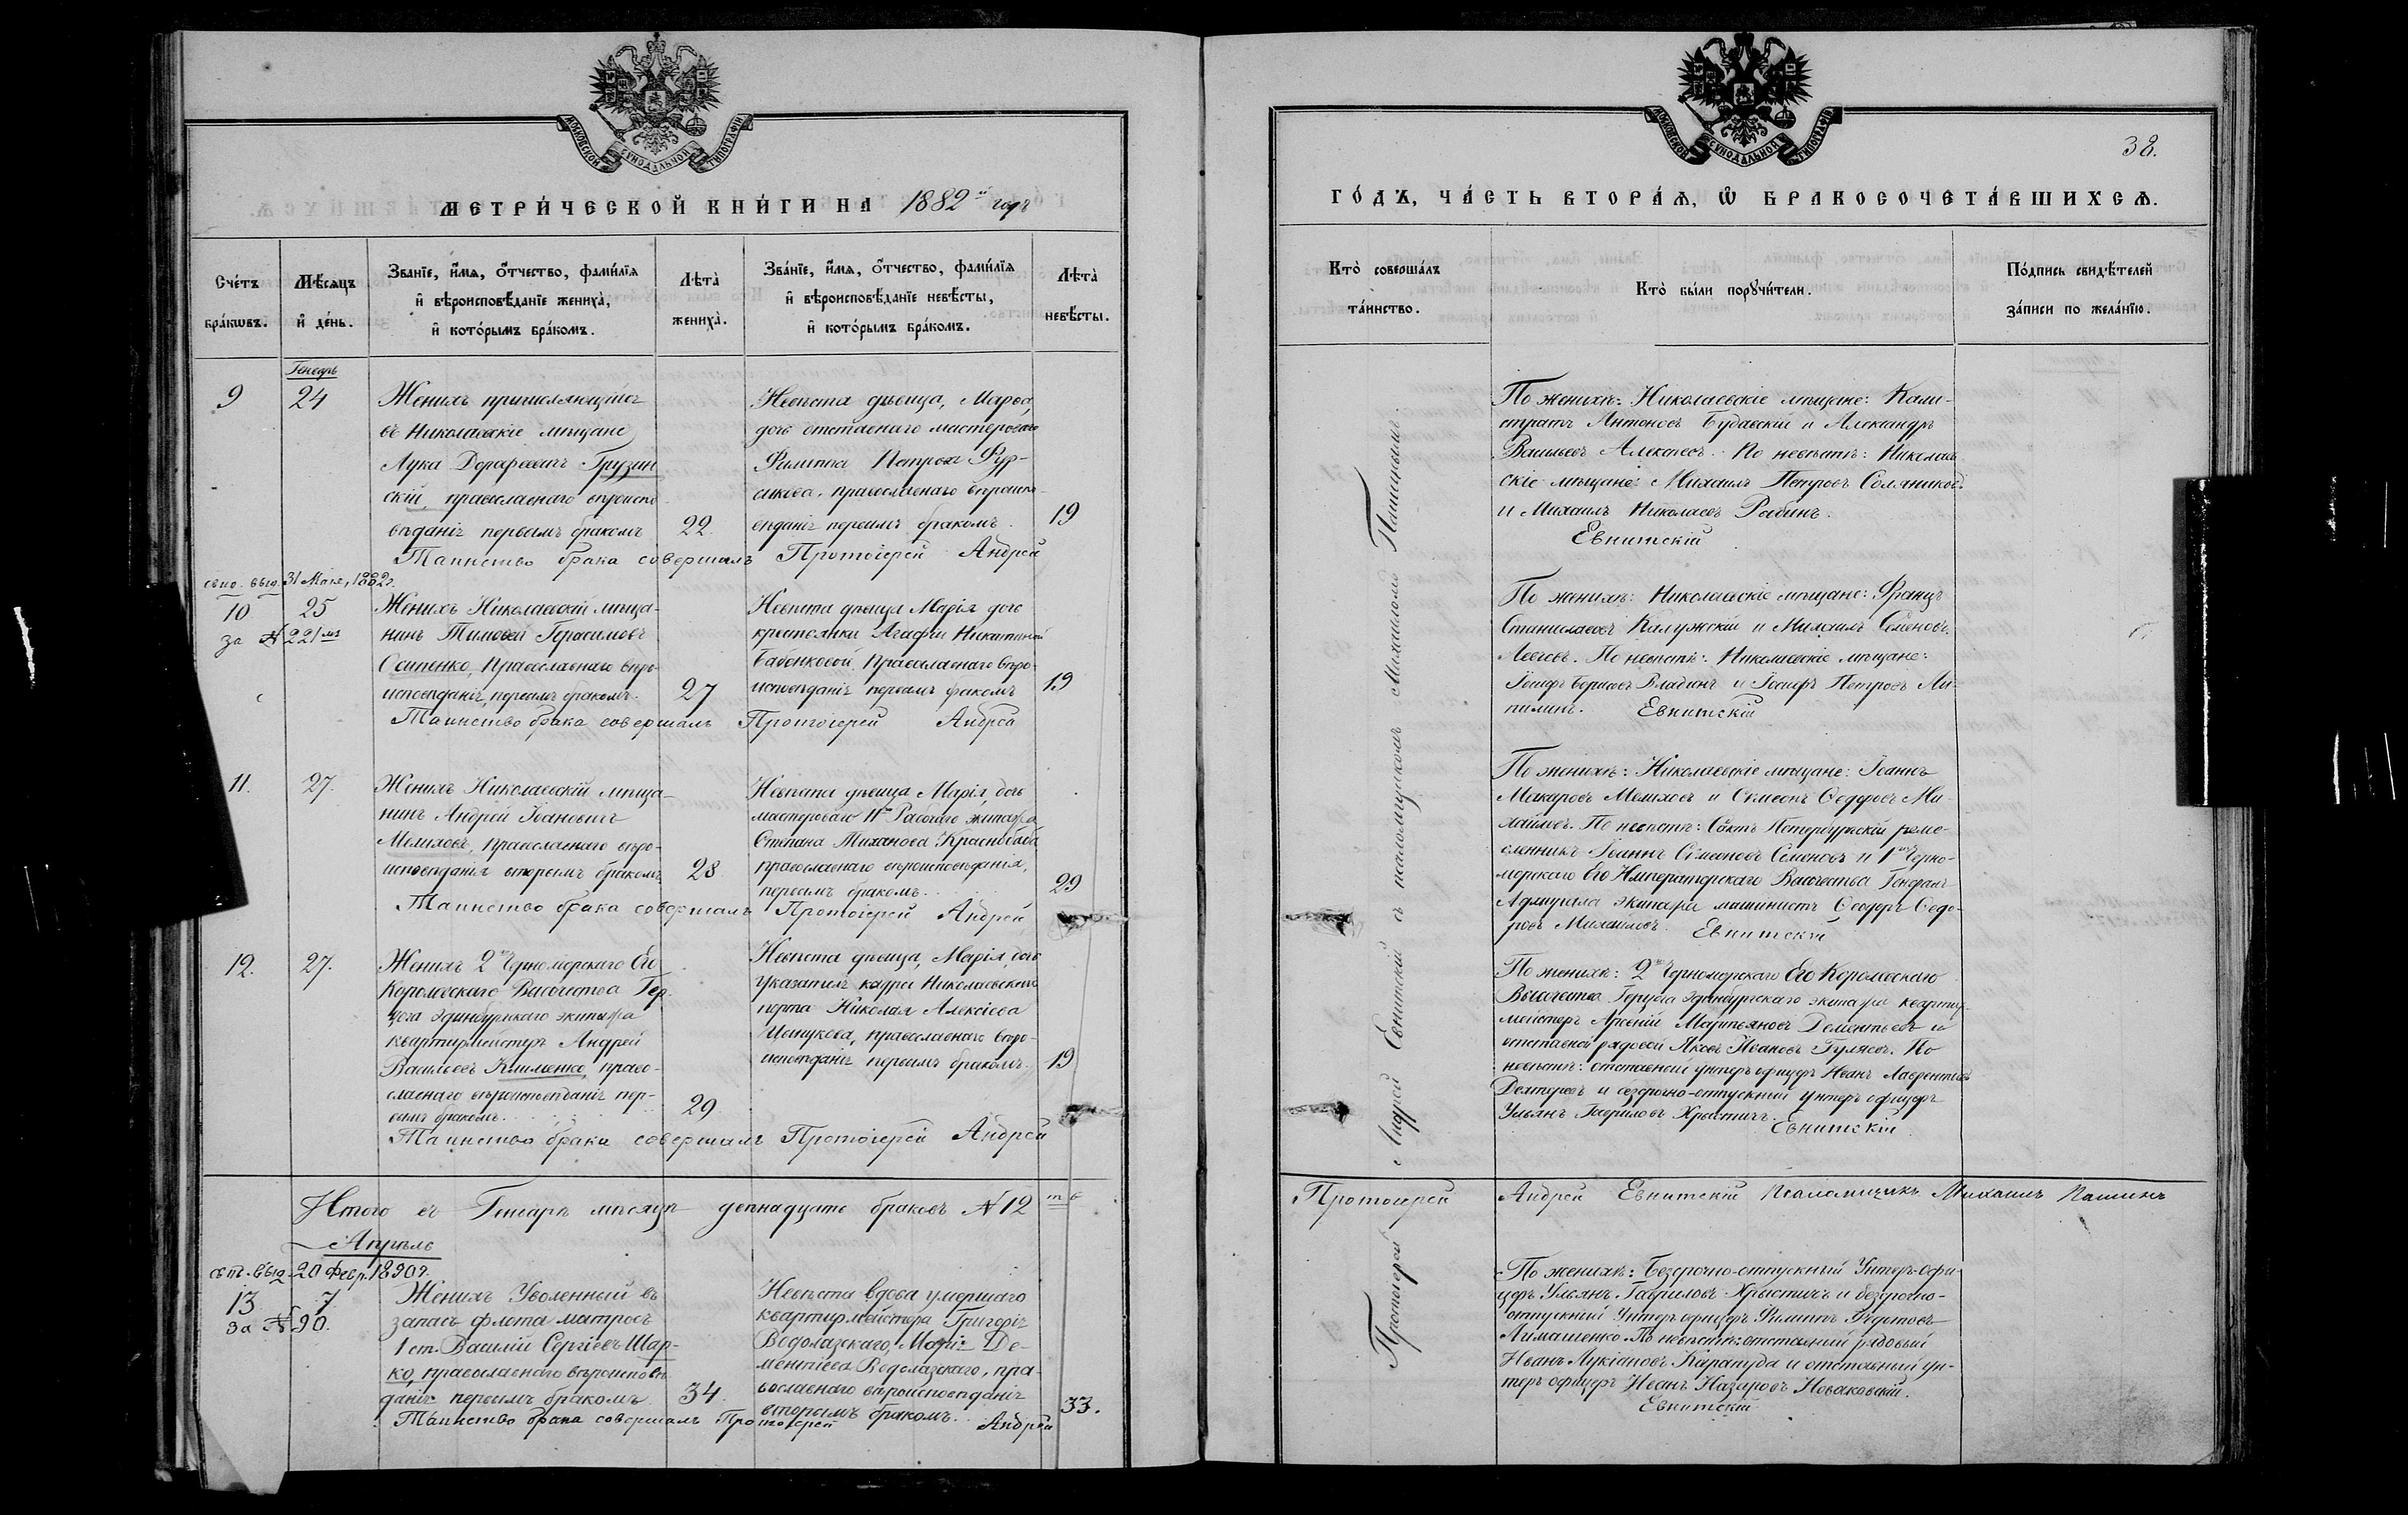 МОСКОВСКОЙ СѴНОДАЛЬНОЙ ТИПОГРАФІИ
МЕТРИ́ЧЕСКОЙ КНИ́ГИ НА 1882й годъ
Сче́тъ бра́кѡвъ.
Мѣ́сяцъ и҆ де́нь.
Зва́нїе, и҆́мѧ, ѻ҆́тчество, фамі́лїѧ
и҆ вѣроисповѣ́данїе женихѧ̀,
и҆ кото́рымъ бра́комъ.
Лѣта̀ жениха̀.
Зва́нїе, и҆́мѧ, ѻ҆́тчество, фамі́лїѧ
и҆ вѣроисповѣ́данїе невѣ́сты,
и҆ кото́рымъ бра́комъ.
Лѣта̀ невѣ́сты.
Генварь
9
24
Женихъ причисляющійся
въ Николаевскіе мѣщане
Лука Дорофеевичъ Грузин
скій, православнаго вѣроиспо
вѣданія первымъ бракомъ
22
Невѣста дѣвица, Марѳа,
дочь отставнаго мастероваго
Филиппа Петрова Фур-
сикова, православнаго вѣроиспо-
вѣданія первымъ бракомъ.
19
Таинство брака совершалъ Протоіерей Андрей
свид. выд. 31 Мая, 1882г.
10
25
за №221мъ
Женихъ Николаевскій мѣща-
нинъ Тимоѳей Герасимовъ
Осипенко, Православнаго вѣро-
исповѣданія, первымъ бракомъ.
27
Невѣста дѣвица Марія дочь
крестьянки Агафіи Никитиной
Бабенковой, Православнаго вѣро-
исповѣданія первымъ бракомъ
19
Таинство брака совершалъ Протоіерей Андрей
11.
27.
Женихъ Николаевскій мѣща-
нинъ Андрей Івановичъ
Мелиховъ, православнаго вѣро-
исповѣданія вторымъ бракомъ
28
Невѣста дѣвица Марія, дочь
мастероваго Рабочаго экипажа
Степана Тиханова Краснобаба
православнаго вѣроисповѣданія,
первымъ бракомъ.
29
Таинство брака совершалъ Протоіерей Андрей
12.
27.
Женихъ 2го Черноморскаго Его
Королевскаго Высочества Гер
цога Эдинбургскаго экипажа
квартирмейстеръ Андрей
Васильевъ Клименко, право-
славнаго вѣроисповѣданія пер-
вымъ бракомъ.
29
Невѣста дѣвица, Марія, дочь
указателя Николаевскаго
порта Николая Алексіева
православнаго вѣро-
исповѣданія первымъ бракомъ.
19
Таинство брака совершалъ Протоіерей Андрей
Итого въ Генварѣ мѣсяцѣ двѣнадцать браковъ №12ть
Апрѣль
свид. выд. 20 Февр. 1890г.
13
7
за №90.
Женихъ Уволенный въ
запасъ флота матросъ
1 ст. Василій Сергіевъ Шар-
ко, православнаго вѣроисповѣ
данія первымъ бракомъ
34.
Невѣста вдова умершаго
квартирмейстера Григорія
Водолазскаго, Марія Де-
ментіева Водолазскаго, пра-
вославнаго вѣроисповѣданія
вторымъ бракомъ.
33.
Таинство брака совершалъ Протоіерей Андрей
МОСКОВСКОЙ СѴНОДАЛЬНОЙ ТИПОГРАФІИ
38.
ГО́ДЪ, ЧА́СТЬ ВТОРА́Ѧ, Ѡ҆ БРАКОСОЧЕТА́ВШИХСѦ.
Кто̀ соверша́лъ
та́инство.
Кто̀ бы́ли порꙋчи́тели.
По́дпись свидѣ́телей
за́писи по жела́нїю.
Протоіерей Андрей Евнитскій съ псаломщикомъ Михаиломъ Пашинымъ.
По женихѣ: Николаевскіе мѣщане: Кали-
стратъ Антоновъ Будавскій и Александръ
Васильевъ Алексѣевъ. По невѣстѣ: Николаев
скіе мѣщане: Михаилъ Петровъ Соляниковъ
и Михаилъ Николаевъ Рабинъ.
Евнитскій
По женихѣ: Николаевскіе мѣщане: Францъ
Станиславовъ Калужскій и Михаилъ Семеновъ
По невѣстѣ: Николаевскіе мѣщане:
Іосифъ Борисовъ Владинъ и Іосифъ Петровъ Ли-
пилинъ. Евнитскій
По женихѣ: Николаевскіе мѣщане: Іоаннъ
Макаровъ Мелиховъ и Симеонъ Ѳедоровъ Ми-
хайловъ. По невѣстѣ: Санктъ Петербургскій реме-
сленникъ Іоаннъ Симеоновъ Семеновъ и 1го Черно-
морскаго Его Императорскаго Высочества Генералъ
Адмирала экипажа машинистъ Ѳеодоръ Ѳедо-
ровъ Михайловъ. Евнитскій
По женихѣ: 2го Черноморскаго Его Королевскаго
Высочества Герцога Эдинбургскаго экипажа квартир
мейстеръ Арсеній Мартьяновъ Дементьевъ и
отставной рядовой Яковъ Ивановъ Гуляевъ. По
невѣстѣ: отставный унтеръ офицеръ Иванъ Лаврентьевъ
Дехтеревъ и безсрочно-отпускный унтеръ офицеръ
Ульянъ Гавриловъ Хрыстичъ. Евнитскій
Протоіерей Андрей Евнитскій Псаломщикъ Михаилъ Пашинъ
По женихѣ: Безсрочно-отпускный Унтеръ-офи-
церъ Ульянъ Гавриловъ Хрыстичъ и безсрочно-
отпускный Унтеръ офицеръ Филиппъ
Лимашенко. По невѣстѣ: отставный рядовый
Иванъ Лукіановъ Карапуда и отставный ун-
теръ офицеръ Иванъ Назаровъ Новаковскій.
Евнитскій